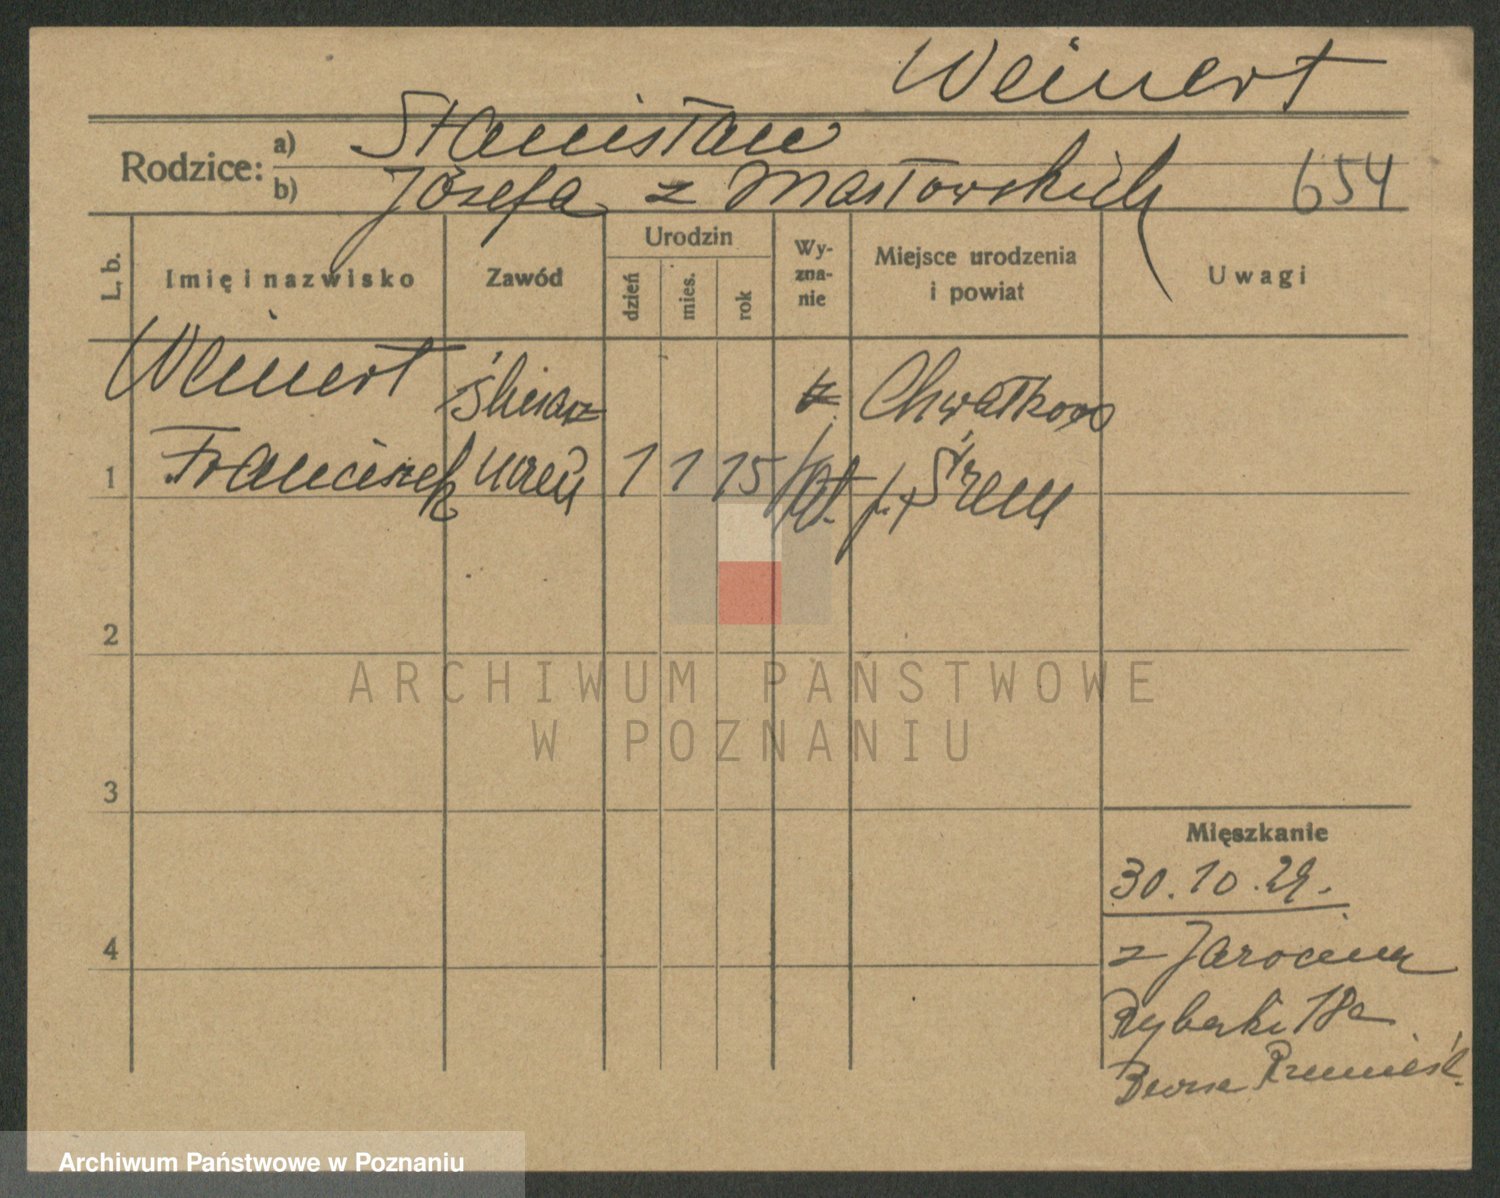 Weinert
Rodzice: a) Stanisław
b) Józefa z Masłowskich 654
L. b. Imię i nazwisko Zawód Urodzin dzień mies. rok Wy-zna-nie Miejsce urodzenia i powiat Uwagi
Weinert ślusarz Chwałkowo
1 Franciszek uczeń 1 1 15 kat. p. Śrem
2
ARCHIWUM PAŃSTWOWE
W POZNANIU
3
Mięszkanie
30.10.29.
4 z Jarocina
Rybaki 18a
Bursa Rzemieśl.
Archiwum Państwowe w Poznaniu